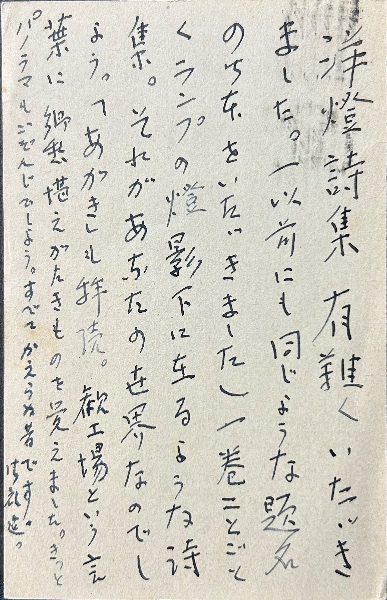 洋燈詩集 有難くいたゞき
ました。(以前にも同じような題名
の御本をいたゞきました)一巻ことごと
くランプの燈影下に在るような詩
集。それがあなたの世界なのでし
ょう。「あがき」も拝読。勧工場という言
葉に郷愁堪えがたきものを覚えました。きっと
パノラマもごぞんじでしょう。すべてかえらぬ昔です。